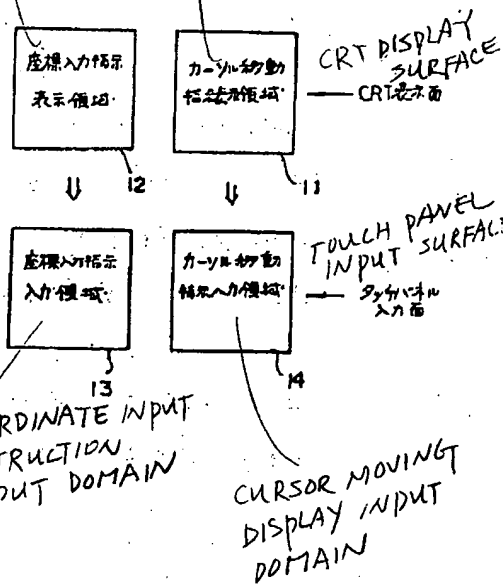 座標入力指示
表示領域
カーソル移動
指示表示領域
CRT DISPLAY
SURFACE
CRT表示面
12
11
座標入力指示
入力領域
カーソル移動
指示入力領域
TOUCH PANEL
INPUT SURFACE
タッチパネル
入力面
13
14
RDINATE INPUT
TRUCTION
PUT DOMAIN
CURSOR MOVING
DISPLAY INPUT
DOMAIN